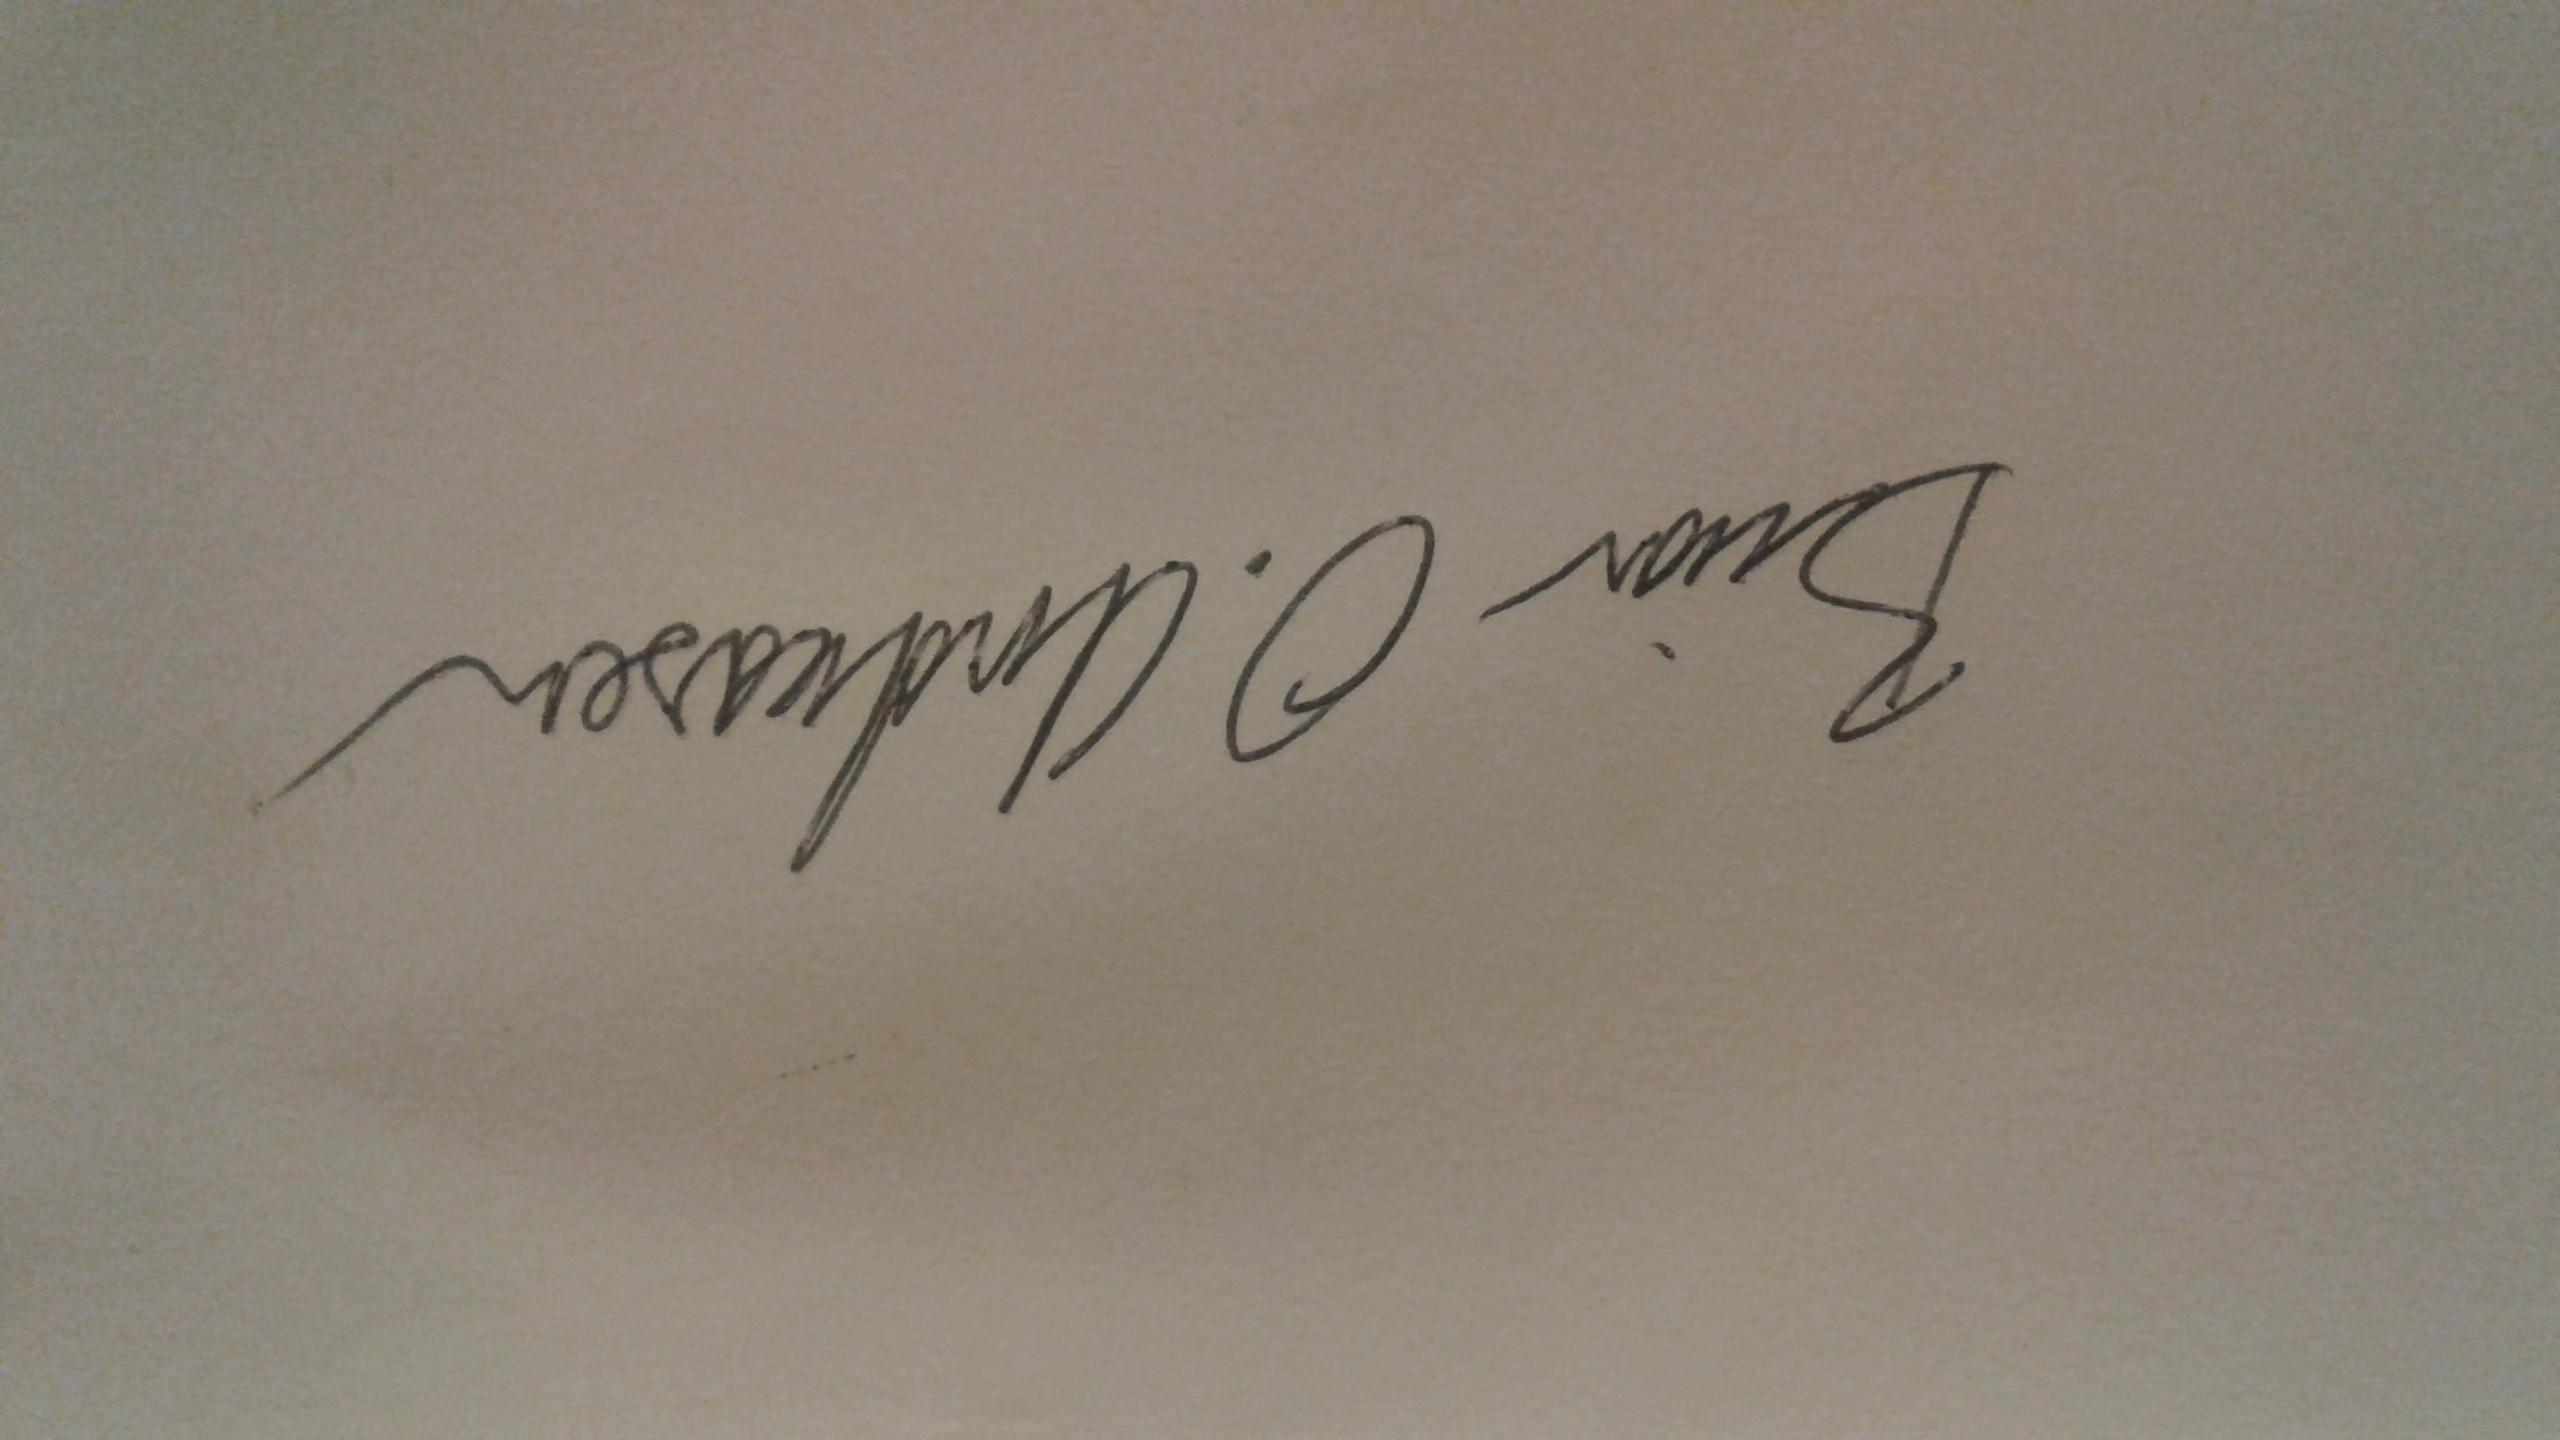 Brian O. Andreasen